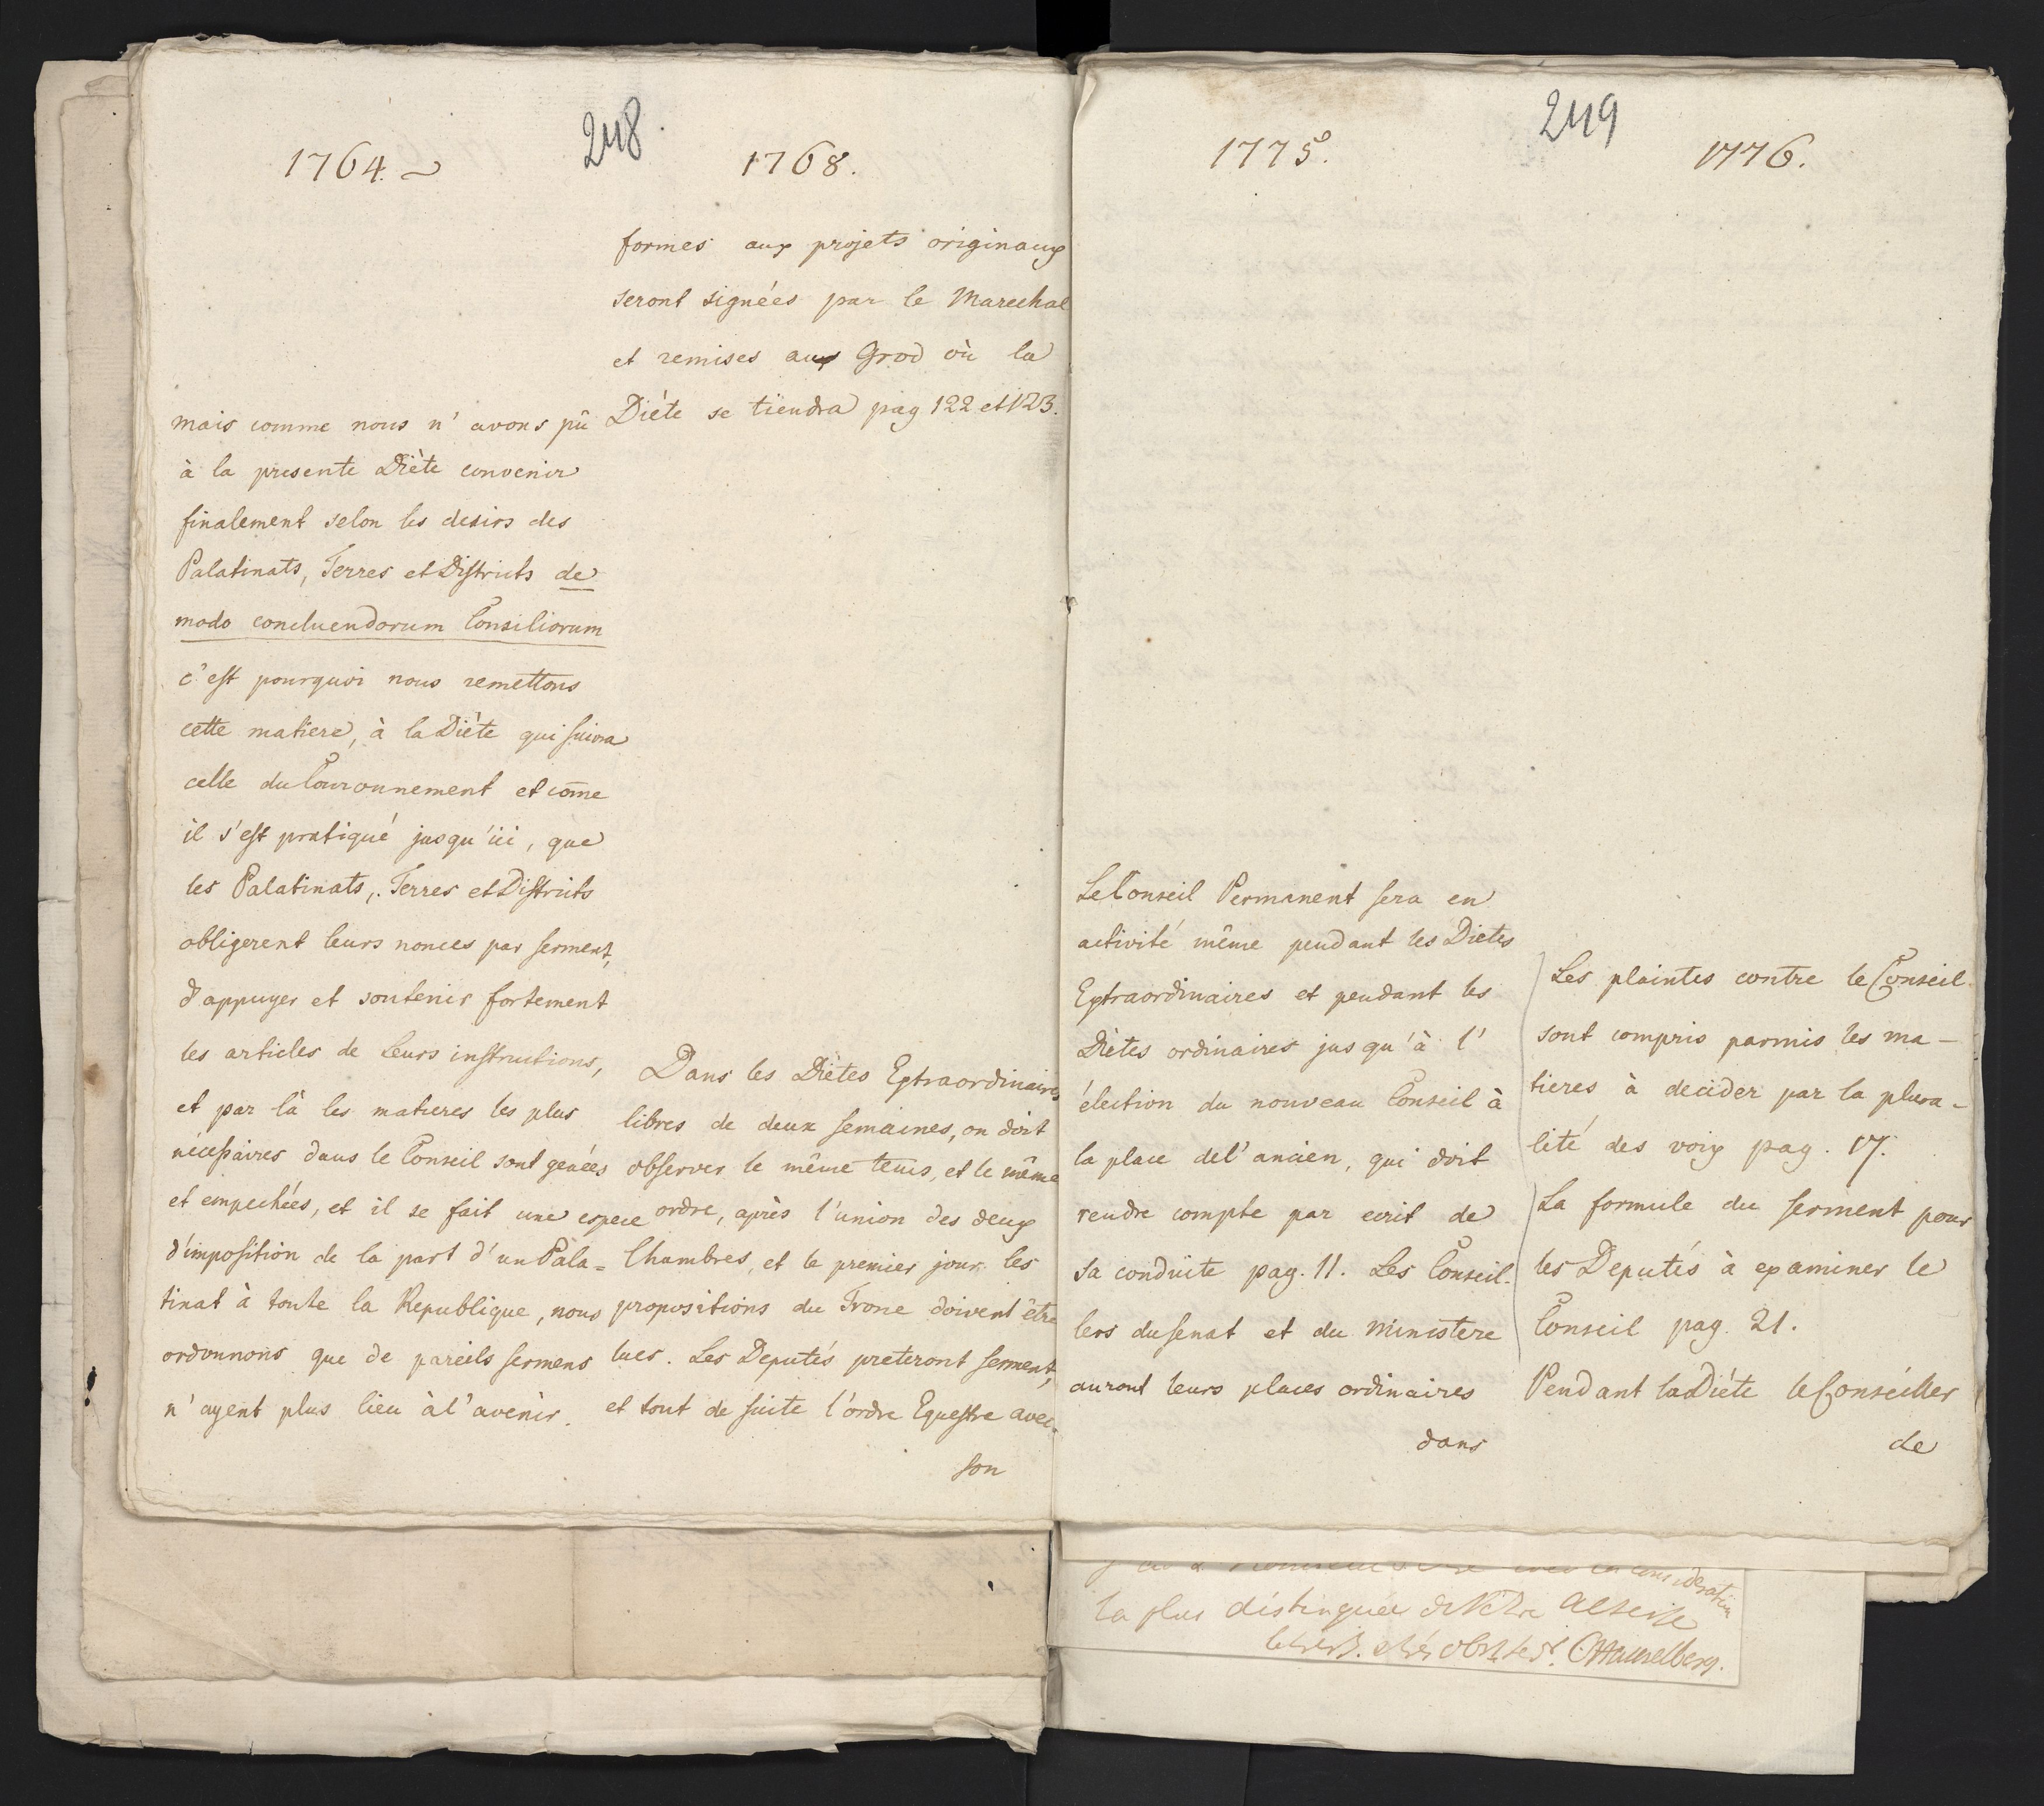 248
1764.
mais comme nous n'avons pû
à la presente Diète convenir
finalement selon les desirs des
Palatinats, Terres et Districts de
modo concluendorum Consiliorum
c'est pourquoi nous remettons
cette matiere, à la Diète qui suivra
celle du Couronnement et come
il s'est pratiqué jusqu'ici, que
les Palatinats, Terres et Districts
obligerent leurs nonces par serment,
d'appuyer et soutenir fortement
les articles de leurs instructions,
et par là les matieres les plus
nécessaires dans le Conseil sont genées
et empechées, et il se fait une espece
d'imposition de la part d'un Pala=
tinat à toute la Republique, nous
ordonnons que de pareils sermens
n'ayent plus lieu à l'avenir.
1768.
formes aux projets originaux
seront signées par le Marechal
et remises aux Grod où la
Diéte se tiendra pag 122 et 123.
Dans les Diètes Extraordinaires
libres de deux semaines, on doit
observer le même tems, et le même
ordre, après l'union des deux
Chambres, et le premier jour les
propositions du Trone doivent être
lues. Les Deputés preteront serment,
et tout de suite l'ordre Equestre avec
son
249
1775.
Le Conseil Permanent sera en
activité même pendant les Dietes
Extraordinaires et pendant les
Diètes ordinaires jusqu'à l'
élection du nouveau Conseil à
la place de l'ancien, qui doit
rendre compte par ecrit de
sa conduite pag. 11. Les Conseil-
lers du senat et du Ministere
auront leurs places ordinaires
dans
1776.
Les plaintes contre le Conseil
sont compris parmis les ma-
tieres à decider par la plura-
lité des voix pag. 17.
La formule du serment pour
les Deputés à examiner le
Conseil pag. 21.
Pendant la Diéte le Conseiller
de
consideration
la plus distinguée de Votre Altesse